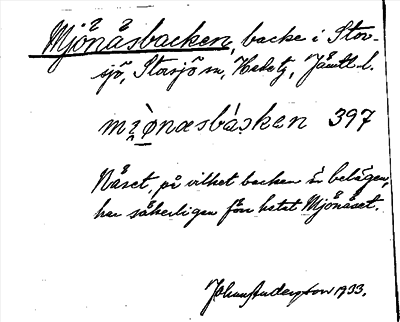 Mjönåsbacken, backe i Stor-
sjö, Storsjö sn, Hede tg, Jämtl. l.
mi̯ònæsbàsken 397
Näset, på vilket backen är belägen,
har säkerligen förr hetat Mjönäset.
Johan Anderzson 1933.